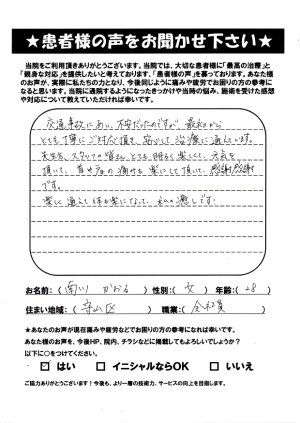 ★患者様の声をお聞かせ下さい★
当院をご利用頂きありがとうございます。当院では、大切な患者様に「最高の治療」と
「親身な対応」を提供したいと考えております。「患者様の声」を募っております。あなた様
の声が、実際に私たちの力となり、今後同じように痛みや疲労でお困りの方の参考に
なると思います。当院に通院するようになったきっかけや当時の悩み、施術を受けた感想
や対応について教えていただければ幸いです。
交通事故にあい、不安だったのですが、最初から
とても丁寧にご対応頂き、安心して治療に通んています。
先生も、スタッフの皆さんとても明るく楽しくて、元気を
頂いて、首や肩の痛みも楽にして頂いて、感謝感謝
です。
楽しく通えて体が楽になって、私の癒しです!
お名前:(南川 かおる) 性別:(女) 年齢:(28)
住まい地域:(守山区) 職業:(会社員)
★あなたのお声が現在痛みや疲労などでお困りの方の参考になれば幸いです。
あなた様のお声を、今後HP、院内、チラシなどに掲載してもよろしいでしょうか?
以下に○をつけてください。
はい イニシャルならOK いいえ
ご協力ありがとうございます!今後も、より一層の技術力、サービスの向上を目指します。